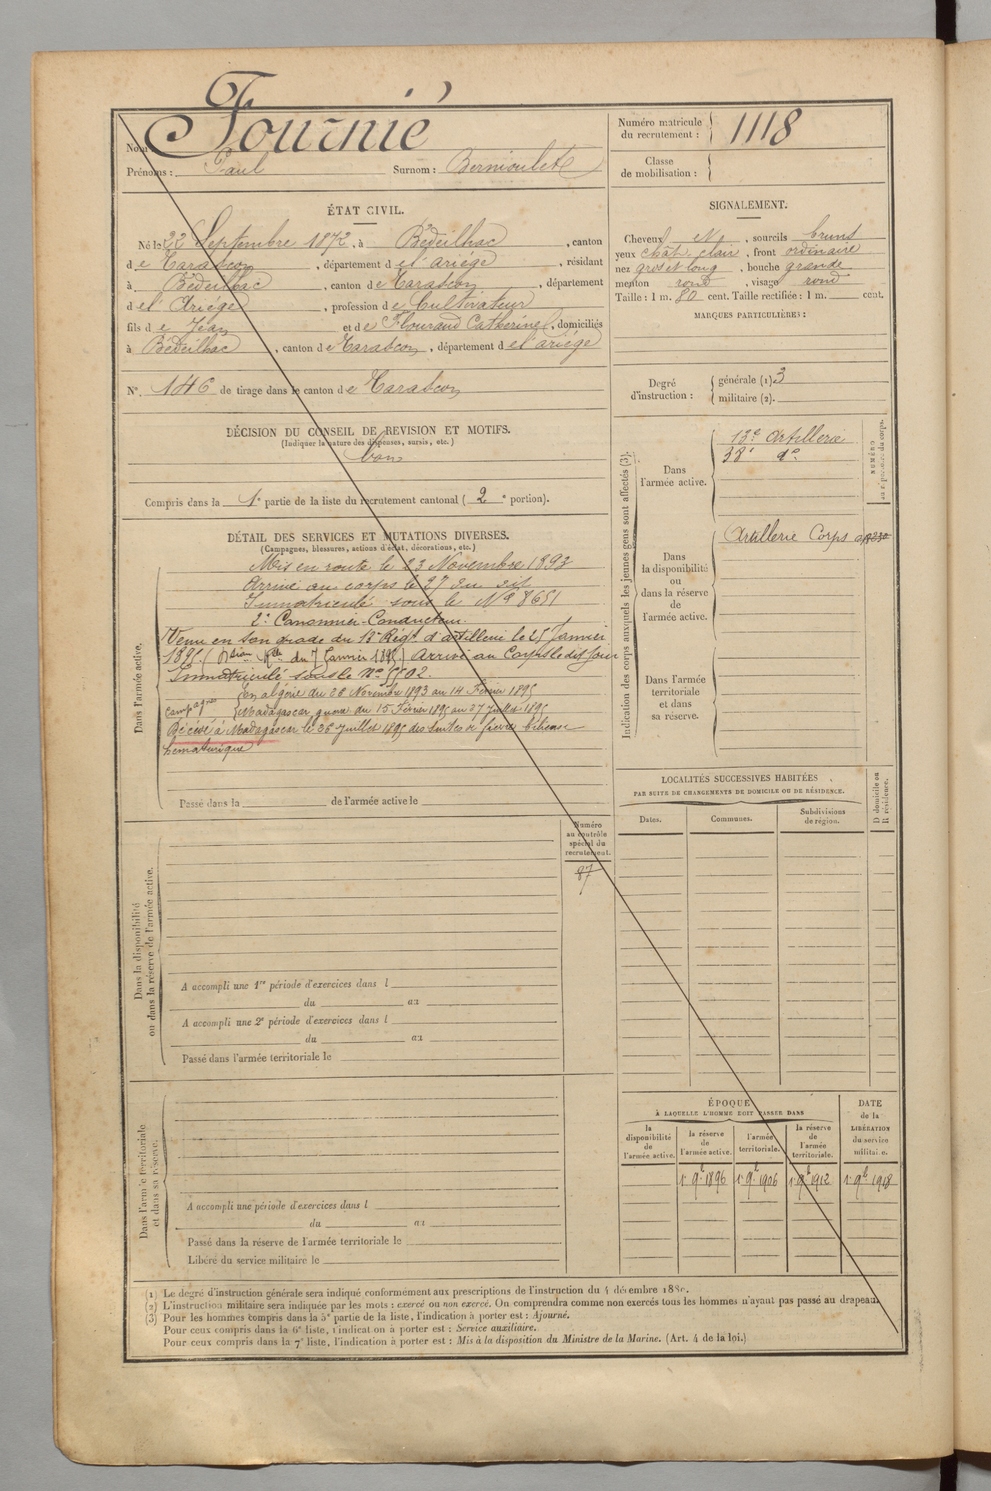 Nom Fournié
Prénoms : Paul Surnom : Bernioulet
Numéro matricule du recrutement : 1118
Classe de mobilisation :
ÉTAT CIVIL.
Né le 22 Septembre 1872, à Bédeilhac, canton
de Tarascon, département de l'ariége, résidant
à Bédeilhac, canton de Tarascon, département
de l'Ariége, profession de Cultivateur
fils de Jean et de Flouraud Catherine, domiciliés
à Bédeilhac, canton de Tarascon, département de l'ariége
N°. 146 de tirage dans le canton de Tarascon
SIGNALEMENT.
Cheveux , sourcils bruns
yeux chât. clair, front ordinaire
nez gros et long, bouche grande
menton rond, visage rond
Taille : 1 m. 80 cent. Taille rectifiée : 1 m. cent.
MARQUES PARTICULIÈRES :
Degré d'instruction : générale (1). 3
militaire (2).
DÉCISION DU CONSEIL DE REVISION ET MOTIFS.
(Indiquer la nature des dispenses, sursis, etc.)
bon
Compris dans la 1e partie de la liste du recrutement cantonal (2e portion).
DÉTAIL DES SERVICES ET MUTATIONS DIVERSES.
(Campagnes, blessures, actions d'éclat, décorations, etc.)
Dans l'armée active.
Mis en route le 23 Novembre 1893
Arrivé au corps le 27 du dit
Immatriculé sous le N° 8651
2e Canonnier-Conducteur.
Venu en son grade du 13e Régt d'artillerie le 25 Janvier
1895 (Don Mlle du 7 Janvier 1895) Arrivé au Corps le dit jour
Immatriculé sous le N° 5502.
Campagnes en algérie du 28 Novembre 1893 au 14 Février 1895
Madagascar, guerre du 15 Février 1895 au 27 Juillet 1895
Décédé à Madagascar le 26 Juillet 1895 des suites de fièvre bilieuse
hématurique
Passé dans la de l'armée active le
Numéro au contrôle spécial du recrutement.
87
Dans la disponibilité ou dans la réserve de l'armée active.
A accompli une 1re période d'exercices dans l
du au
A accompli une 2e période d'exercices dans l
du au
Passé dans l'armée territoriale le
Dans l'armée territoriale et dans sa réserve.
A accompli une période d'exercices dans l
du au
Passé dans la réserve de l'armée territoriale le
Libéré du service militaire le
Indication des corps auxquels les jeunes gens sont affectés (3).
NUMÉRO
Dans l'armée active.
13e Artillerie
38e do
Dans la disponibilité ou dans la réserve de l'armée active.
Artillerie Corps
Dans l'armée territoriale et dans sa réserve.
LOCALITÉS SUCCESSIVES HABITÉES
PAR SUITE DE CHANGEMENTS DE DOMICILE OU DE RÉSIDENCE.
Dates. Communes. Subdivisions de région. D. domicile ou R. résidence.
ÉPOQUE
À LAQUELLE L'HOMME DOIT PASSER DANS
la disponibilité de l'armée active.
la réserve de l'armée active.
l'armée territoriale.
la réserve de l'armée territoriale.
DATE de la LIBÉRATION du service militaire.
1r 9b 1896 1r 9b 1906 1r 9b 1912 1r 9b 1918
(1) Le degré d'instruction générale sera indiqué conformément aux prescriptions de l'instruction du 4 décembre 1889.
(2) L'instruction militaire sera indiquée par les mots : exercé ou non exercé. On comprendra comme non exercés tous les hommes n'ayant pas passé au drapeau.
(3) Pour les hommes compris dans la 5e partie de la liste, l'indication à porter est : Ajourné.
Pour ceux compris dans la 6e liste, l'indication à porter est : Service auxiliaire.
Pour ceux compris dans la 7e liste, l'indication à porter est : Mis à la disposition du Ministre de la Marine. (Art. 4 de la loi.)